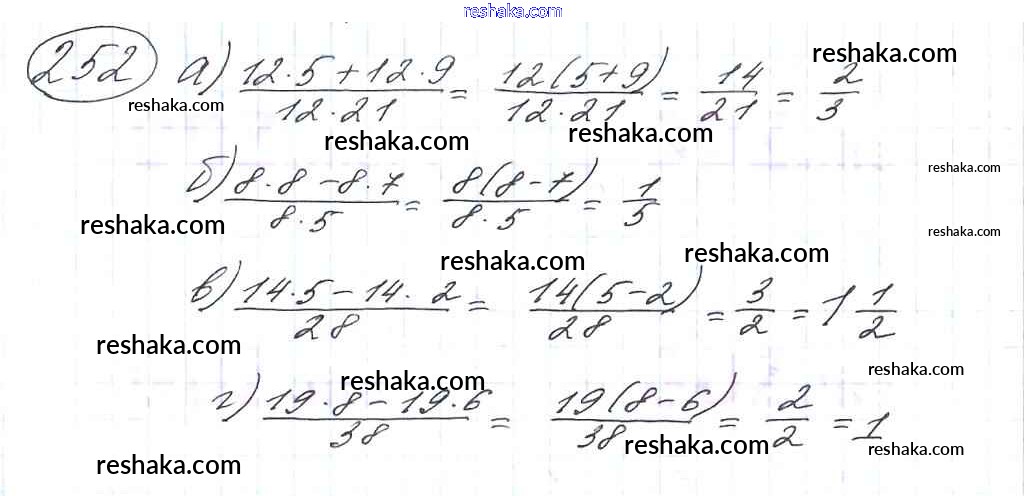 reshaka.com
252 а) (12·5+12·9)/(12·21) = 12(5+9)/(12·21) = 14/21 = 2/3
reshaka.com
reshaka.com
reshaka.com
reshaka.com
б) (8·8-8·7)/(8·5) = 8(8-7)/(8·5) = 1/5
reshaka.com
reshaka.com
reshaka.com
reshaka.com
reshaka.com
в) (14·5-14·2)/28 = 14(5-2)/28 = 3/2 = 1 1/2
reshaka.com
reshaka.com
reshaka.com
г) (19·8-19·6)/38 = 19(8-6)/38 = 2/2 = 1
reshaka.com
reshaka.com
reshaka.com